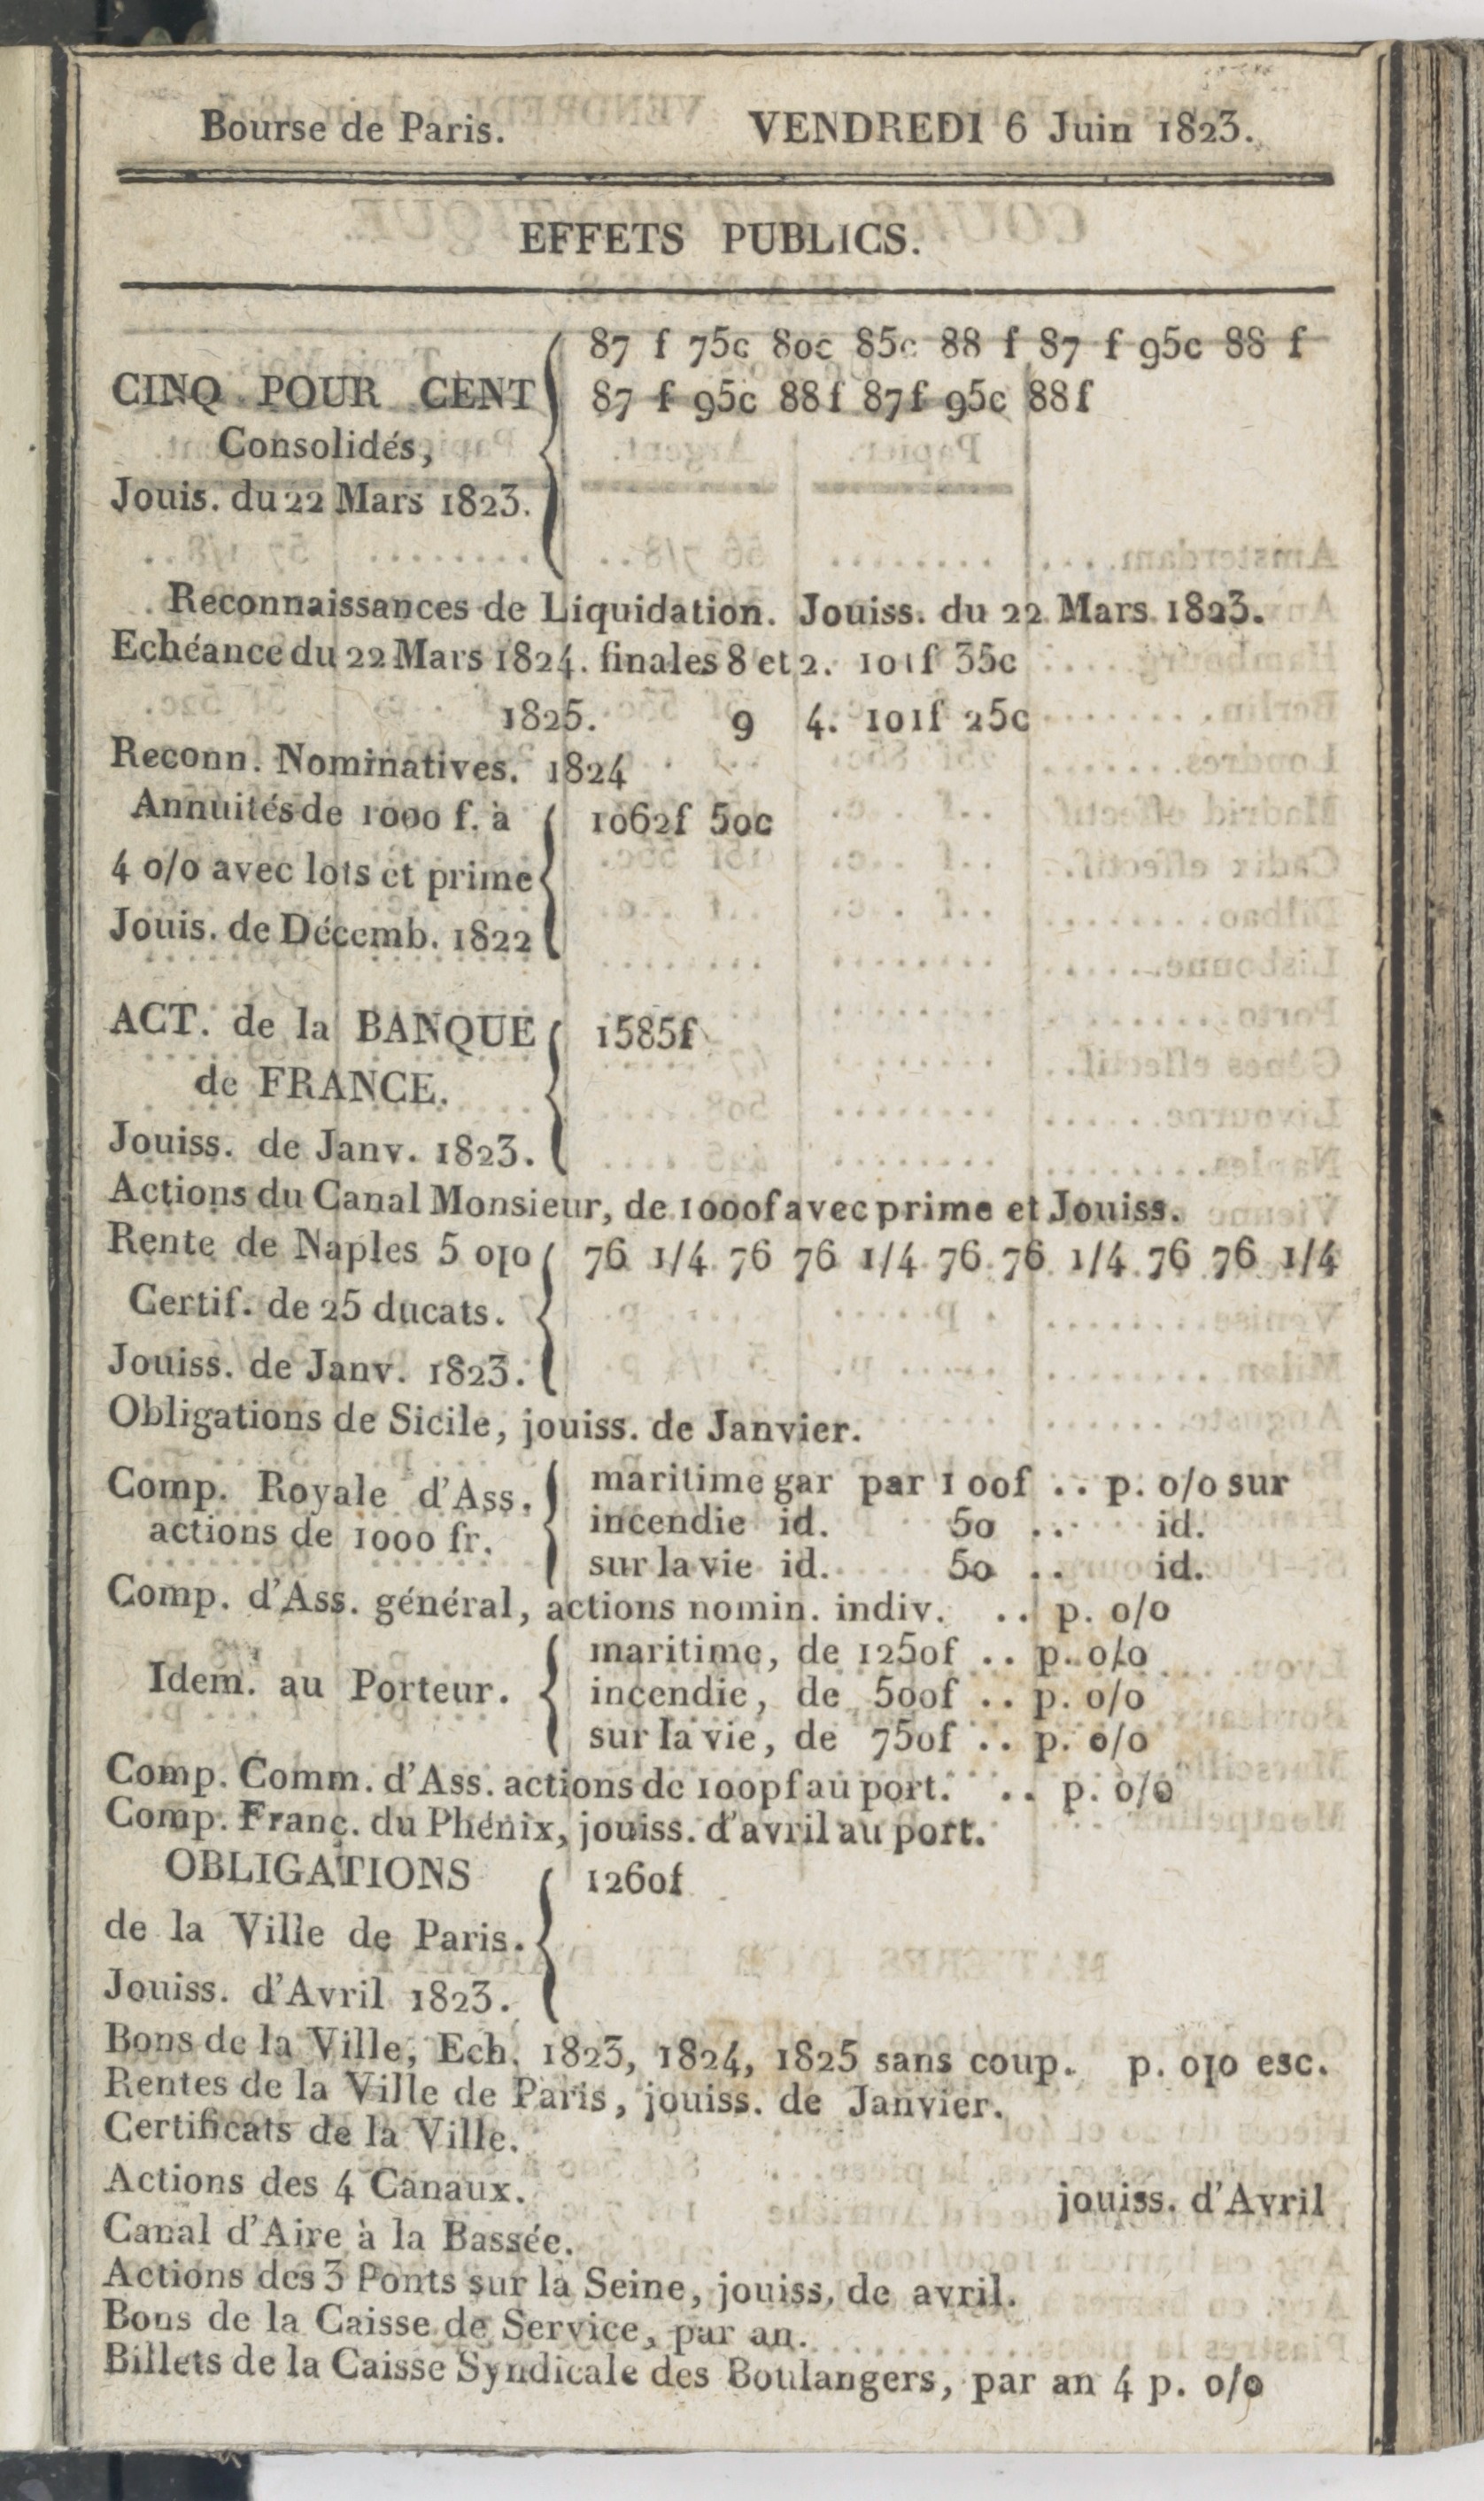 Bourse de Paris. VENDREDI 6 Juin 1823.
EFFETS PUBLICS.
CINQ POUR CENT
Consolidés,
Jouis. du 22 Mars 1823.
87 f 75c 80c 85c 88 f 87 f 95c 88 f
87 f 95c 88f 87f 95c 88f
Reconnaissances de Liquidation. Jouiss. du 22 Mars 1823.
Echéance du 22 Mars 1824. finales 8 et 2. 101f 35c
1825. 9 4. 101f 25c
Reconn. Nominatives. 1824
Annuités de 1000 f. à
4 o/o avec lots et prime
Jouis. de Décemb. 1822
1062f 50c
ACT. de la BANQUE
de FRANCE.
Jouiss. de Janv. 1823.
1585f
Actions du Canal Monsieur, de 1000f avec prime et Jouiss.
Rente de Naples 5 0|0
Certif. de 25 ducats.
Jouiss. de Janv. 1823.
76 1/4 76 76 1/4 76 76 1/4 76 76 1/4
Obligations de Sicile, jouiss. de Janvier.
Comp. Royale d'Ass.
actions de 1000 fr.
maritime gar par 100f .. p. o/o sur
incendie id. 50 .. id.
sur la vie id. 50 .. id.
Comp. d'Ass. général, actions nomin. indiv. .. p. o/o
Idem. au Porteur.
maritime, de 1250f .. p. o/o
incendie, de 500f .. p. o/o
sur la vie, de 750f .. p. o/o
Comp. Comm. d'Ass. actions de 100pf au port. .. p. o/o
Comp. Franç. du Phénix, jouiss. d'avril au port.
OBLIGATIONS
de la Ville de Paris.
Jouiss. d'Avril 1823.
1260f
Bons de la Ville, Ech. 1823, 1824, 1825 sans coup. p. 0|0 esc.
Rentes de la Ville de Paris, jouiss. de Janvier.
Certificats de la Ville.
Actions des 4 Canaux. jouiss. d'Avril
Canal d'Aire à la Bassée.
Actions des 3 Ponts sur la Seine, jouiss. de avril.
Bons de la Caisse de Service, par an.
Billets de la Caisse Syndicale des Boulangers, par an 4 p. o/o